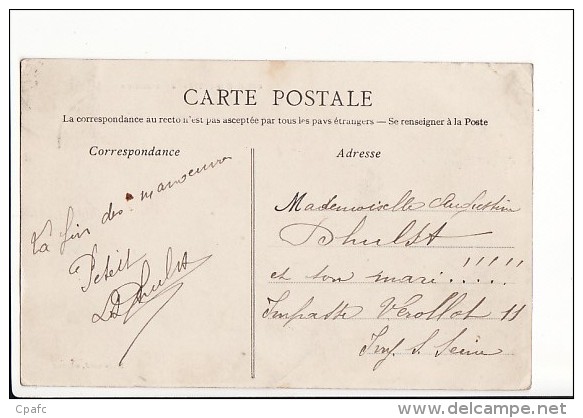 CARTE POSTALE
La correspondance au recto n'est pas acceptée par tous les pays étrangers — Se renseigner à la Poste
Correspondance
Adresse
La fin des manoeuvres
Petit
Dhulst
Mademoiselle Augustine
Dhulst
et son mari !!!!!
Impasse Verollot 11
Ivry s. Seine
Cpafc
www.delcampe.net